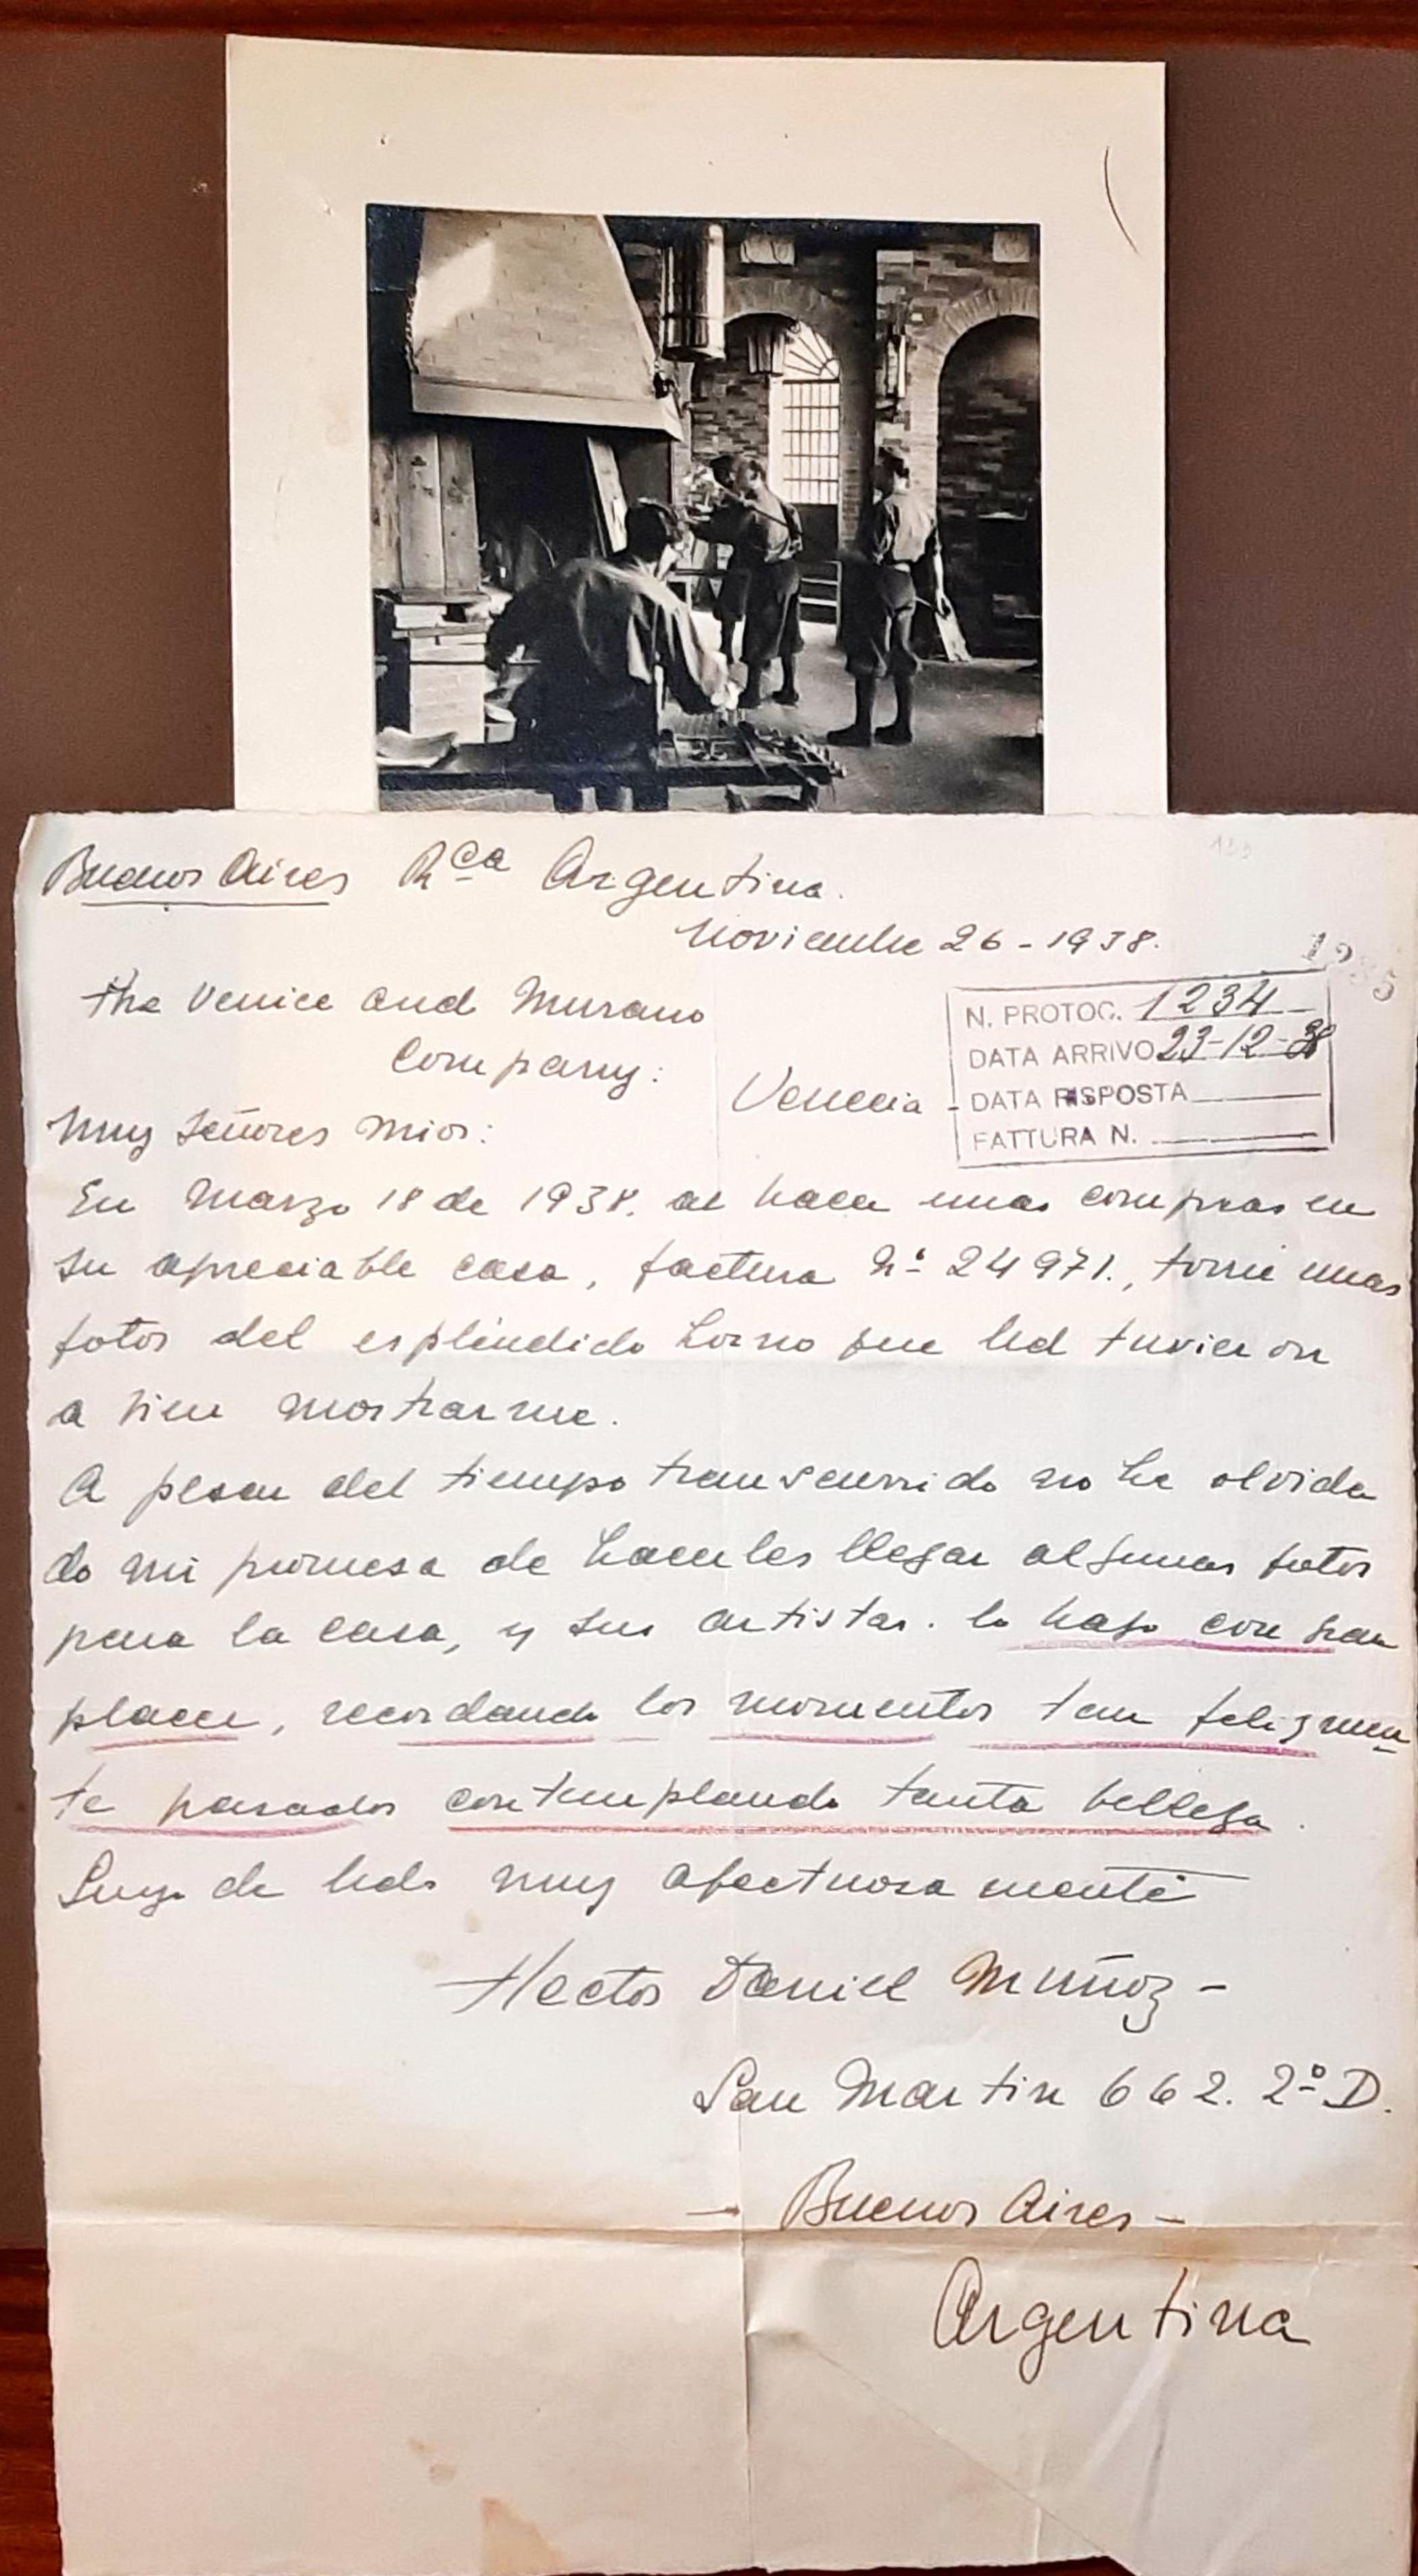 Buenos Aires Rca Argentina.
Noviembre 26-1938.
The Venice and Murano
Company:
Venecia -
N. PROTOC. 1234
DATA ARRIVO 23-12-38
DATA RISPOSTA
FATTURA N.
Muy Señores Mios:
En Marzo 18 de 1938. al hacer unas compras en
su apreciable casa, factura Nº 24971., tomé unas
fotos del espléndido horno que Ud tuvieron
a bien mostrarme.
A pesar del tiempo transcurrido no he olvida
do mi promesa de hacerles llegar algunas fotos
para la casa, y sus artistas. lo hago con gran
placer, recordando los momentos tan felizmen-
te pasados contemplando tanta belleza.
de Uds muy afectuosamente
Hector Daniel Muñoz -
San Martin 662. 2º D.
- Buenos Aires -
Argentina